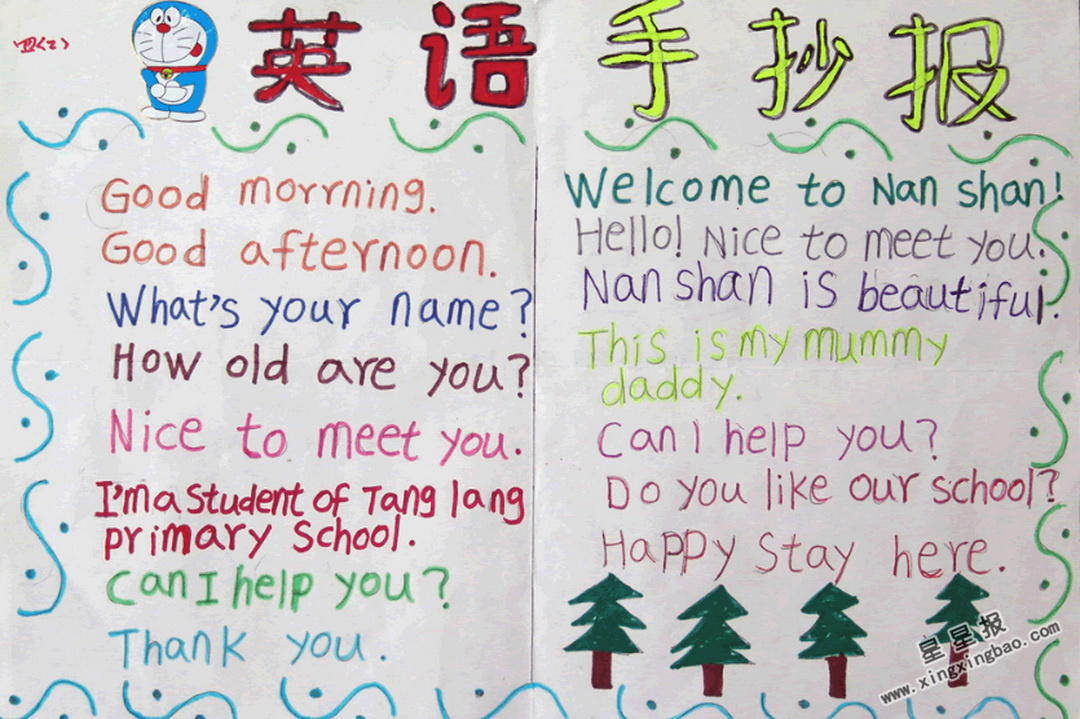 四(2)
英语手抄报
Good morrning.
Good afternoon.
What's your name?
How old are you?
Nice to meet you.
I'm a student of Tang lang
primary School.
Can I help you?
Thank you.
Welcome to Nan shan!
Hello! Nice to meet you.
Nan shan is beautiful.
This is my mummy
daddy.
Can I help you?
Do you like our school?
Happy Stay here.
星星报
www.xingxingbao.com